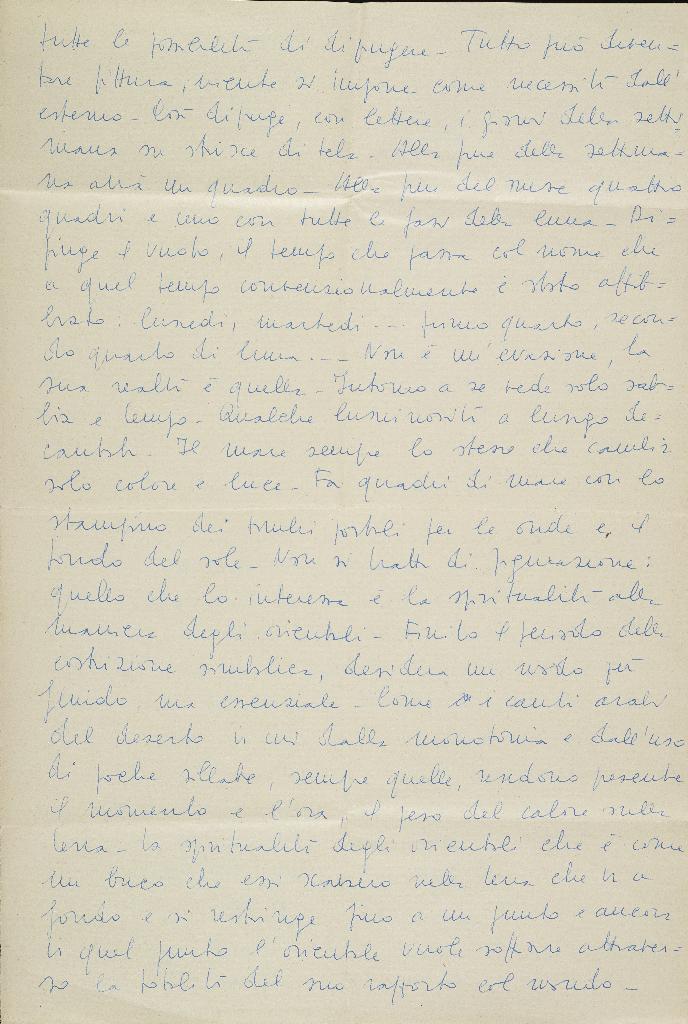 tutte le possibilità di dipingere - Tutto può diven=
tare pittura, niente si impone come necessità dall'
esterno - Così dipinge, con lettere, i giorni della setti=
mana su strisce di tela - Alla fine della settima=
na avrà un quadro - Alla fine del mese quattro
quadri e uno con tutte le fasi della luna - Di=
pinge il vuoto, il tempo che passa col nome che
a quel tempo convenzionalmente è stato affib=
biato: lunedì, martedì ... primo quarto, secon=
do quarto di luna ... - Non è un'evasione, la
sua realtà è quella - Intorno a se vede solo sab=
bia e tempo - Qualche luminosità a lungo de=
cantata - Il mare sempre lo stesso che cambia
solo colore e luce - Fa quadri di mare con lo
stampino dei timbri postali per le onde e il
tondo del sole - Non si tratta di figurazione:
quello che lo interessa è la spiritualità alla
maniera degli orientali - Finito il periodo della
costrizione simbolica, desidera un modo più
fluido, ma essenziale - Come i canti arabi
del deserto in cui dalla monotonia e dall'uso
di poche sillabe, sempre quelle, rendono presente
il momento e l'ora, il peso del calore sulla
terra - La spiritualità degli orientali che è come
un buco che essi scavano nella terra che va a
fondo e si restringe fino a un punto e ancora
in quel punto l'orientale vuole soffrire attraver=
so la totalità del suo rapporto col mondo -